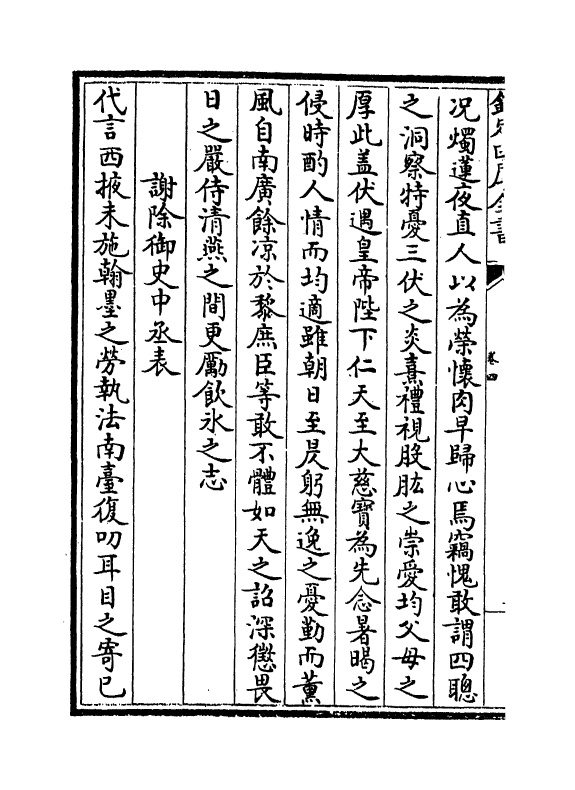 欽定四庫全書
卷四
况燭蓮夜直人以為榮懷肉早歸心焉竊愧敢謂四聰
之洞察特憂三伏之炎熹禮視股肱之崇愛均父母之
厚此盖伏遇皇帝陛下仁天至大慈寶為先念暑暍之
侵時酌人情而均適雖朝日至昃躬無逸之憂勤而薰
風自南廣餘凉於黎庶臣等敢不體如天之詔深懲畏
日之嚴侍清燕之間更勵飲氷之志
謝除御史中丞表
代言西掖未施翰墨之勞執法南臺復叨耳目之寄已